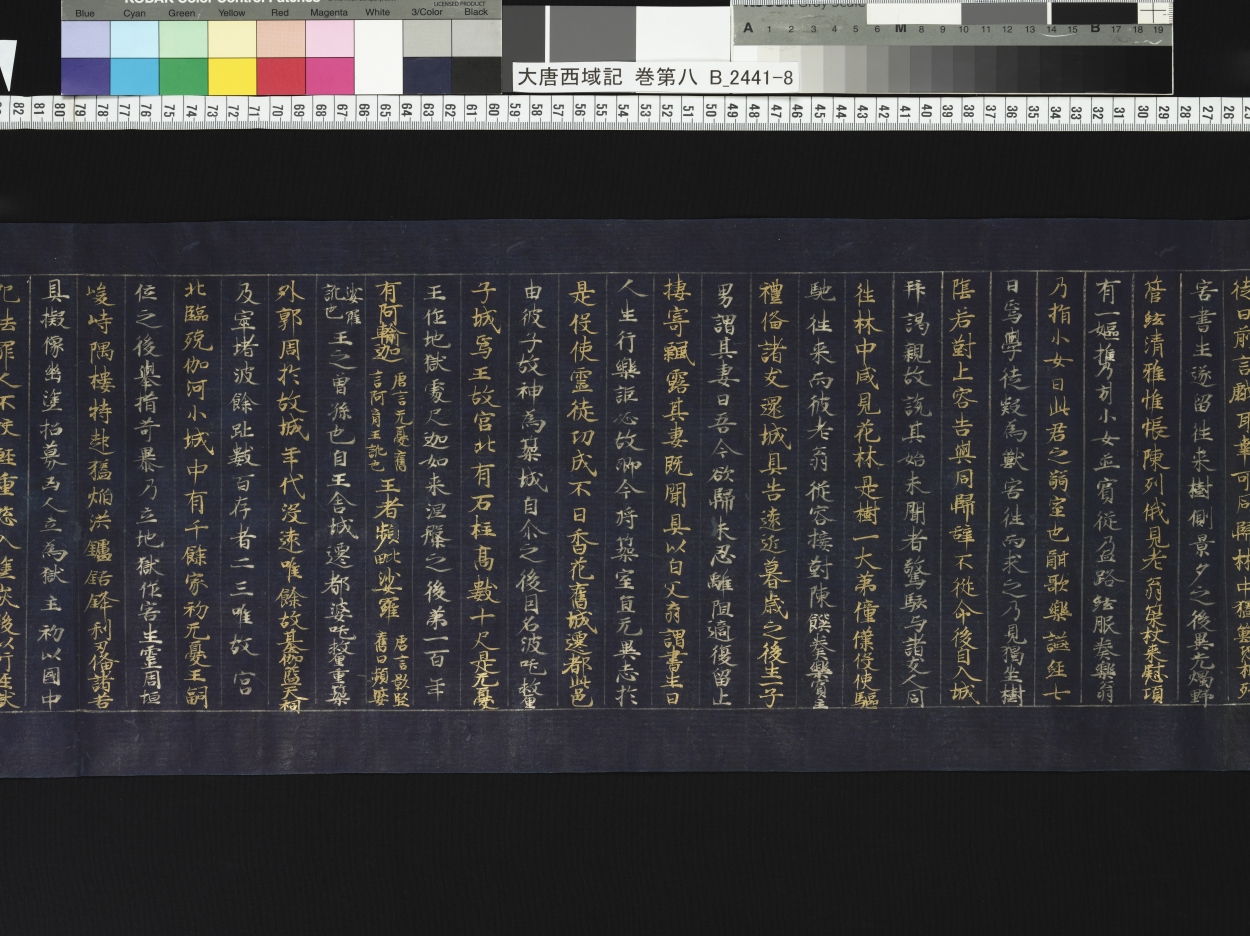 Blue Cyan Green Yellow Red Magenta White 3/Color Black
大唐西域記 巻第八 B_2441-8
徒曰前言戲耳幸可同歸林中猛獸恐相殘
害書生遂留往来樹側景夕之後異光燭野
管絃清雅惟帳陳列俄見老翁策杖来慰項
有一嫗攜引小女並賓從盈路袨服奏樂翁
乃指小女曰此君之弱室也酣歌樂讌經七
日焉學徒疑為獸害往而求之乃見獨坐樹
陰若對上客告與同歸辞不從命後自入城
拜謁親故說其始末聞者驚駭与諸友人同
往林中咸見花林是樹一大第僮僕役使驅
馳往来而彼老翁從容接對陳饌奏樂賓主
禮俻諸友還城具告遠近暮歲之後生一子
男謂其妻曰吾今欲歸未忍離阻適復留止
捿寄飄露其妻既聞具以白父翁謂書生曰
人生行樂詎必故鄉今将築室宜无異志於
是役使靈徒功成不日香花舊城遷都此邑
由彼子故神為築城自尒之後因名波吒釐
子城焉王故宮北有石柱高數十尺是无憂
王作地獄處尺迦如来涅槃之後第一百年
有阿輸迦唐言无憂舊言阿育王訛也王者頻毗娑羅唐言影堅舊曰頻婆
娑羅訛也王之曽孫也自王舍城遷都婆吒釐重築
外郭周於故城年代浸遠唯餘故基伽藍天祠
及窣堵波餘趾數百存者二三唯故宮
北臨殑伽河小城中有千餘家初无憂王嗣
位之後舉措苛暴乃立地獄作害生靈周垣
峻峙隅樓特起猛焰洪鑪銛鋒利刃俻諸苦
具擬像幽塗招募凶人立為獄主初以國中
犯法罪人不校輕重